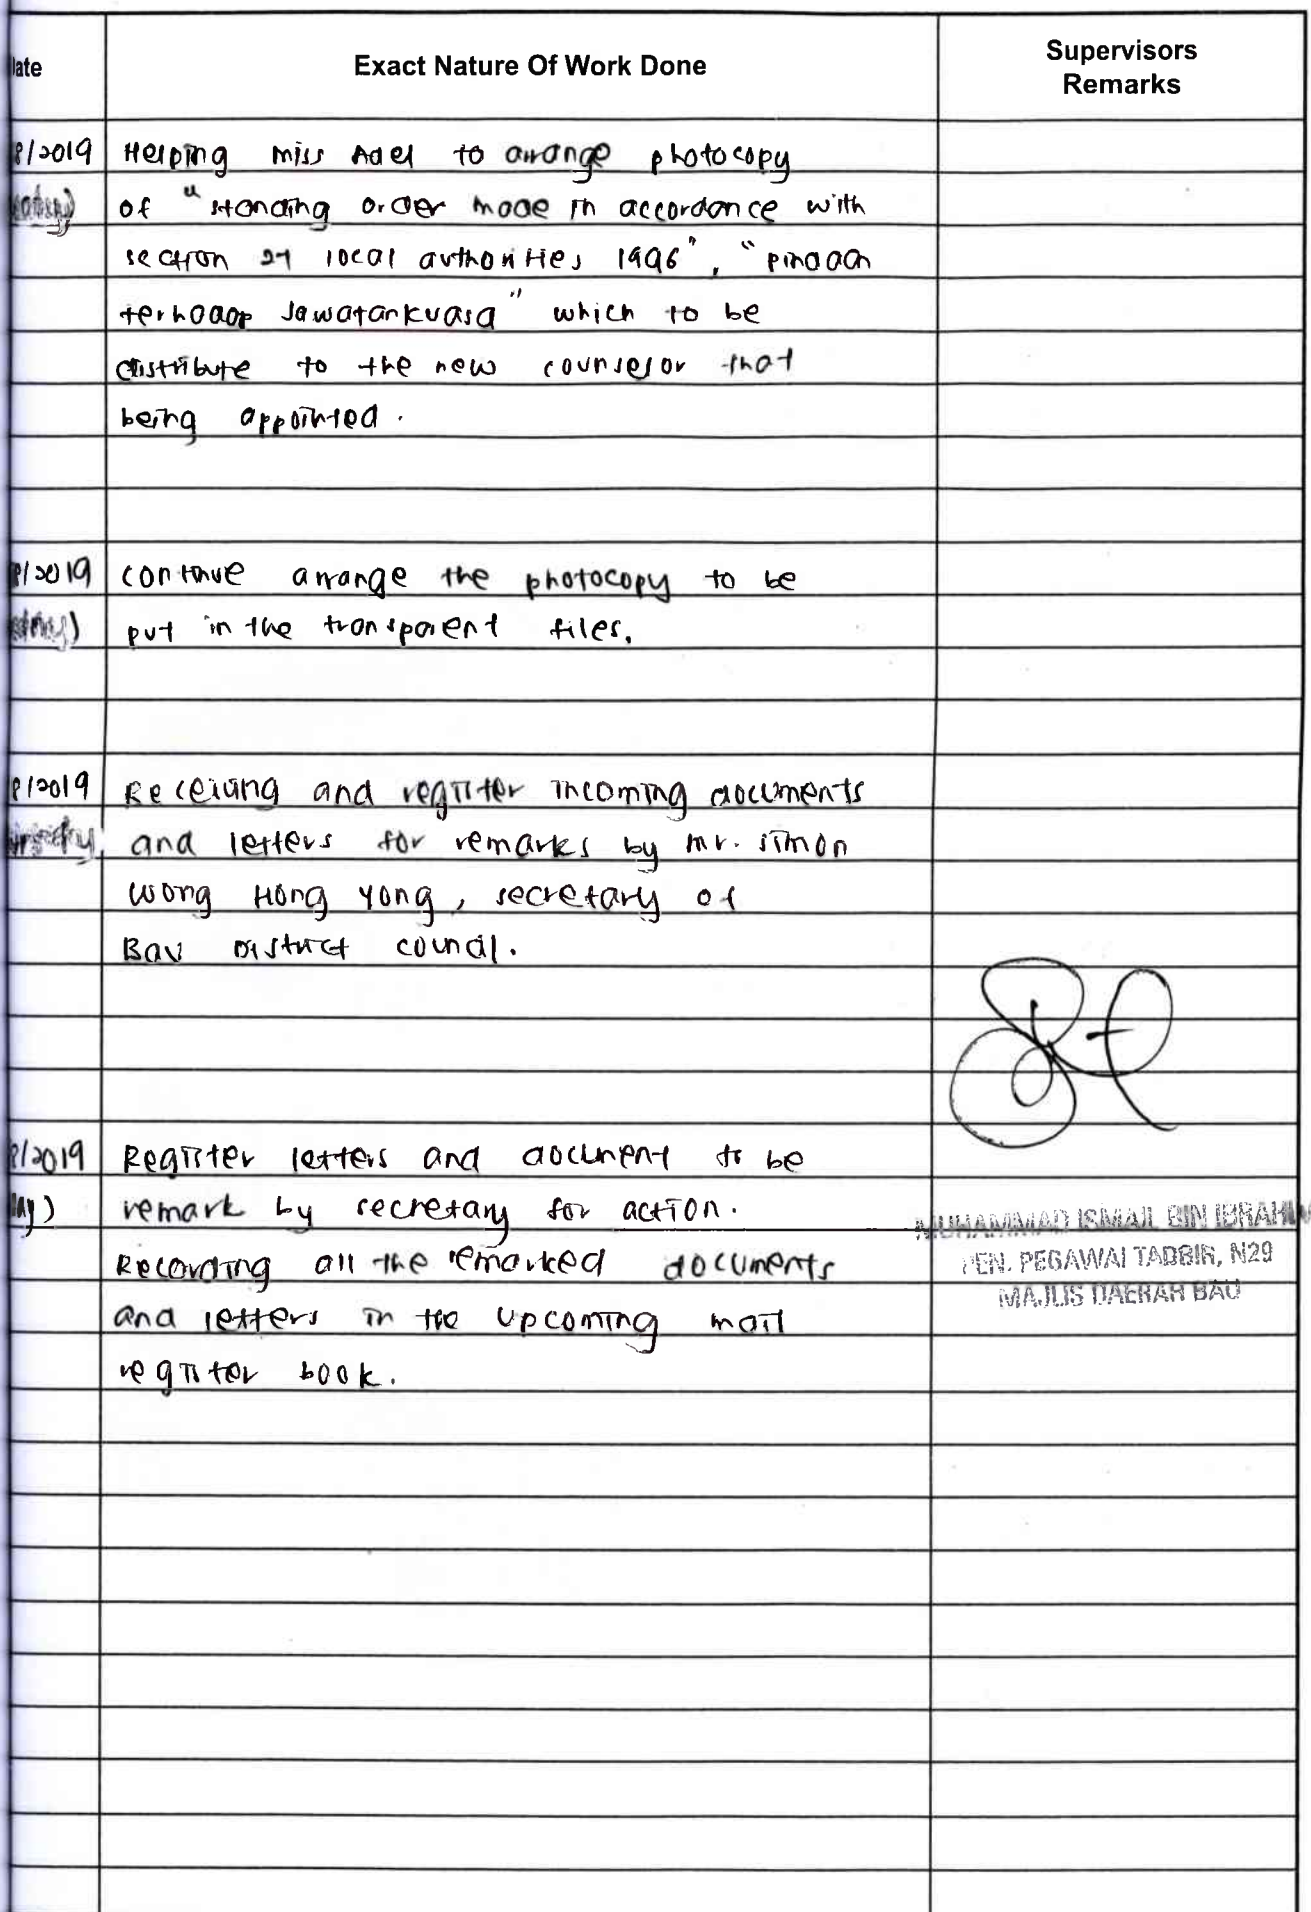 ate Exact Nature Of Work Done Supervisors
Remarks
8/2019 Helping miss Adel to arrange photocopy
of "standing order made in accordance with
section 29 local authorities 1996", "pindaan
terhadap Jawatankuasa" which to be
distribute to the new counselor that
being appointed.
8/2019 continue arrange the photocopy to be
put in the transparent files.
8/2019 Receiving and register incoming documents
and letters for remarks by mr. simon
Wong Hong Yong, secretary of
Bau District council.
8/2019 Register letters and document to be
ay) remark by secretary for action.
Recording all the remarked documents
and letters in the upcoming mail
register book.
MUHAMMAD ISMAIL BIN IBRAHIM
PEN. PEGAWAI TADBIR, N29
MAJLIS DAERAH BAU